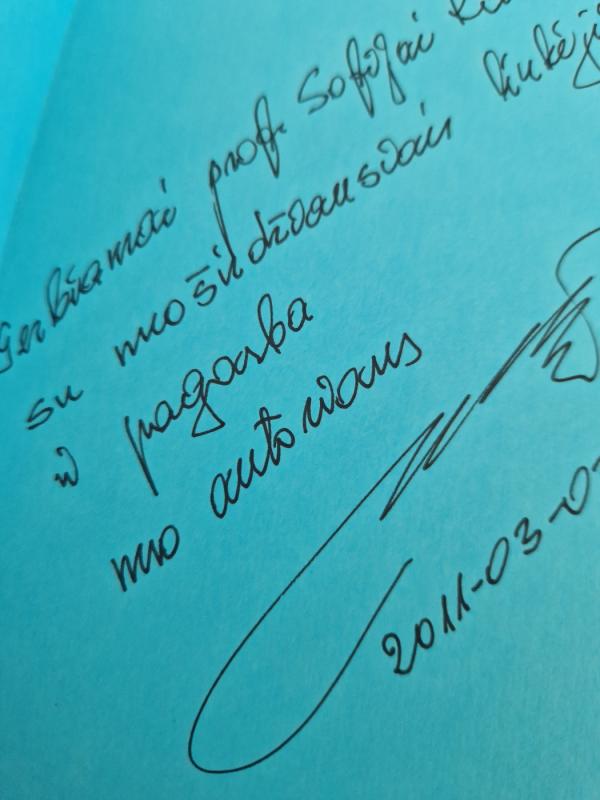 Gerbiamai prof. Sofijai
su nuoširdžiausiais linkėji
ir pagarba
nuo autoriaus
2011-03-0